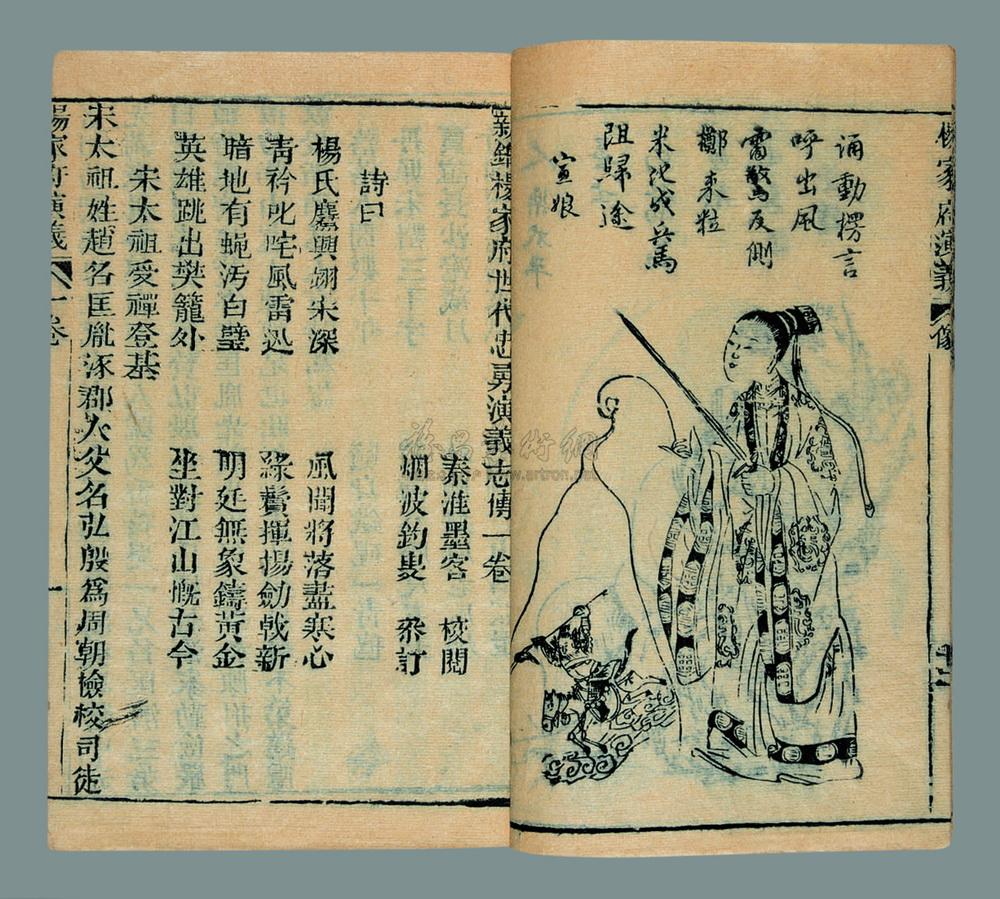 楊家府演義 像
誦動楞言
呼出風
雷驚反側
擲來粒
米化成兵馬
阻歸途
宣娘
十二
新鐫楊家府世代忠勇演義志傳一卷
秦淮墨客 校閱
烟波釣叟 叅訂
詩曰
楊氏麾興翊宋深 風聞將落盡寒心
靑衿叱咤風雷迅 綠鬢揮揚劍戟新
暗地有蝇汚白璧 明廷無象鑄黃金
英雄跳出樊籠外 坐對江山慨古今
宋太祖受禪登基
宋太祖姓趙名匡胤涿郡人父名弘殷爲周朝檢校司徒
楊家府演義 一卷 一
www.artron.net